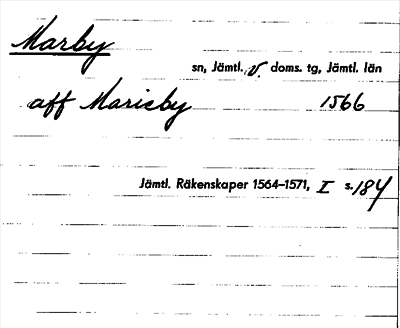 Marby
sn, Jämtl. v. doms. tg, Jämtl. län
aff Maricby 1566
Jämtl. Räkenskaper 1564–1571, I s. 184